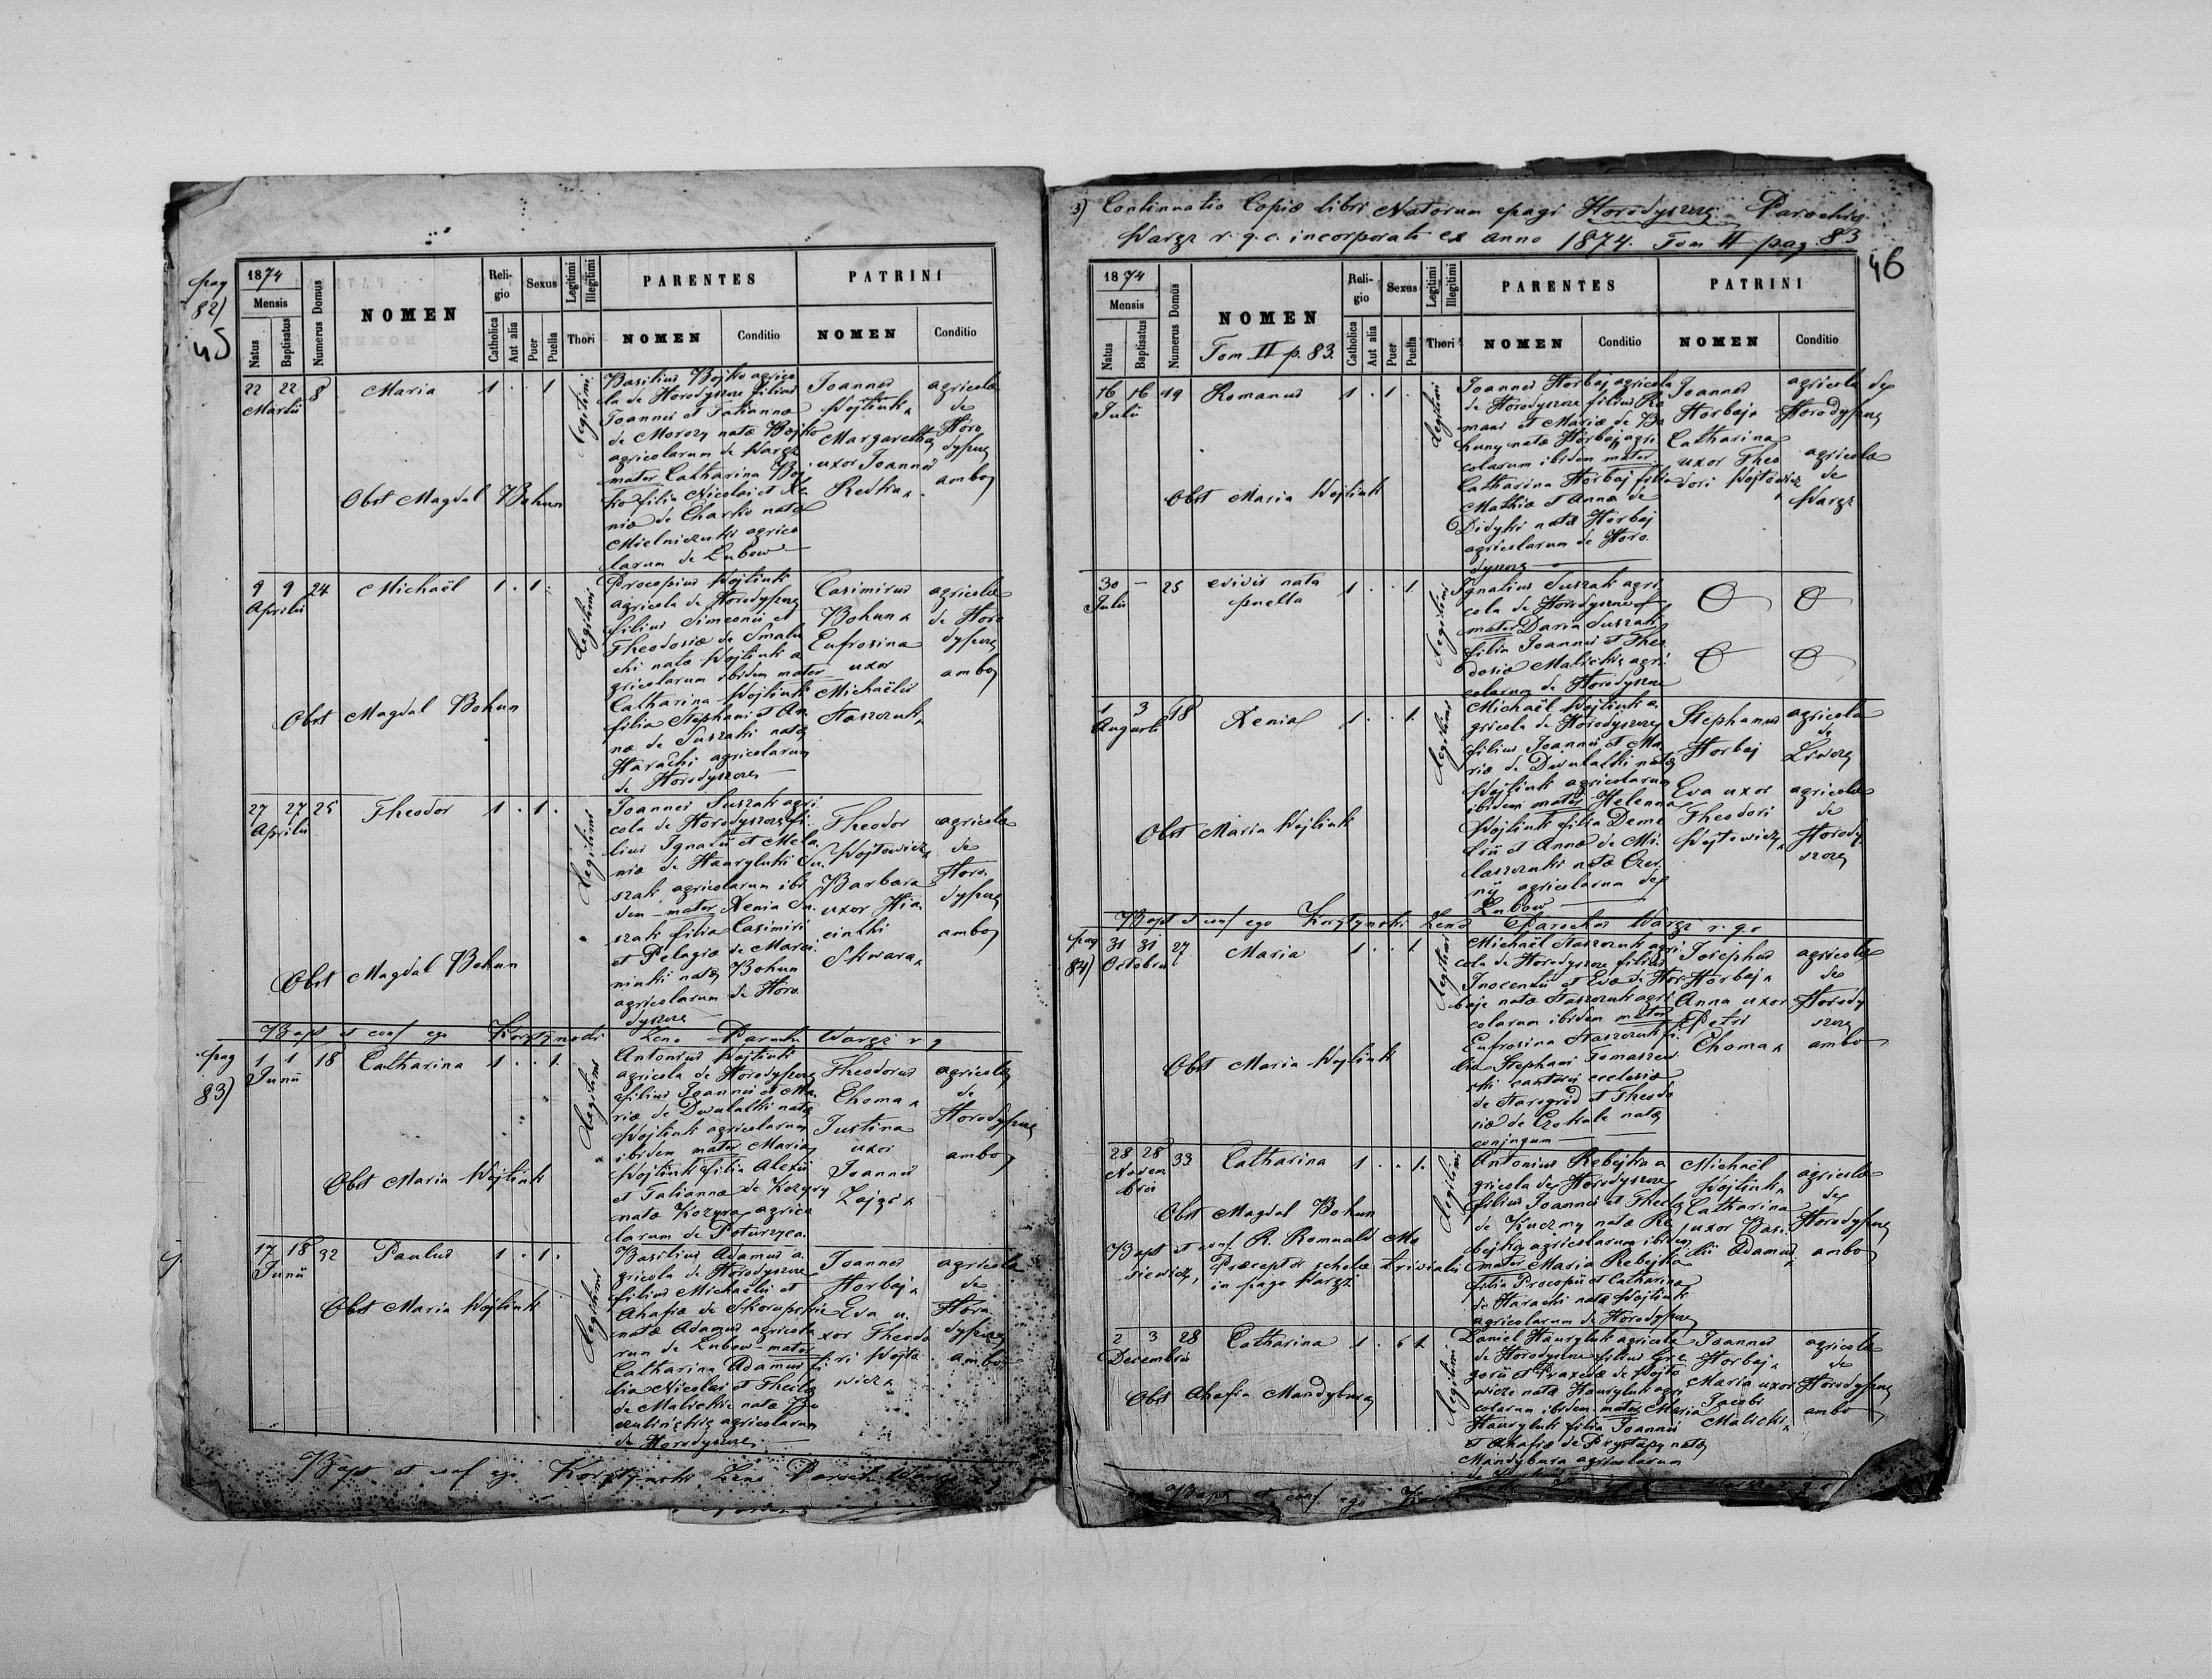 pag
82)
45
1874
Mensis
Natus
Baptisatus
Numerus Domus
NOMEN
Reli-
gio
Catholica
Aut alia
Sexus
Puer
Puella
Legitimi
Illegitimi
Thori
PARENTES
NOMEN
Conditio
PATRINI
NOMEN
Conditio
22 22 8 Maria 1 . . 1
Martii
Legitimi
Basilius Bojko agrico
la de Horodyszcze filius
Joannis et Tatianna
de Morozy nata Bojko
agricolarum de Waręż
mater Catharina Boj
ko filia Nicolai et Xe
nia de Charko nata
Mielniczuki agrico
larum de Lubow
Joannes
Wojtiuk
Margaretha
uxor Joannis
Redka
agricola
de
Horo
dyszcze
ambo
Obst Magdal Bohun
9 9 24 Michaël 1 . 1 .
Aprilis
Legitimi
Procopius Wojtiuk
agricola de Horodyszcze
filius Simeonis et
Theodosia de
nata Wojtiuk a
gricolarum ibidem mater
Catharina Wojtiuk
filia Stephani et An
na de Suszaki nata
Harachi agricolarum
de Horodyszcze
Casimirus
Bohun
Eufrosina
uxor
Michaëlis
Staszczuk
agricola
de Horo
dyszcze
ambo
Obst Magdal Bohun
27 27 25 Theodor 1 . 1 .
Aprilis
Legitimi
Joannes Suszak agri
cola de Horodyszcze fi
lius Ignatii et Mela
nia de Hawryluki Su
szak agricolarum ibi
dem mater Xenia Su
szak filia Casimiri
et Pelagia de Marci
niuki nata Bohun
agricolarum de Horo
dyszcze
Theodor
Wojtowicz
Barbara
uxor Hia
cinthi
Skwara
agricola
de
Horo
dyszcze
ambo
Obst Magdal Bohun
Bapt et conf ego Korytynski Zeno Parochus Waręż r g
pag
83)
1 1 18 Catharina 1 . . 1.
Junii
Legitimi
Antonius Wojtiuk
agricola de Horodyszcze
filius Joannis et Ma
ria de Duwalski nata
Wojtiuk agricolarum
ibidem mater Maria
Wojtiuk filia Alexii
et Tatianna de Kozyry
nata Kozyra agrico
larum de Poturzyca
Theodorus
Choma
Justina
uxor
Joannis
Zając
agricola
de
Horodyszcze
ambo
Obst Maria Wojtiuk
17 18 32 Paulus 1 . 1 .
Junii
Legitimi
Basilius Adamus a
gricola de Horodyszcze
filius Michaëlis et
Ahafia de Skorupskie
nata Adamus agricola
rum de Lubow mater
Catharina Adamus fi
lia Nicolai et Thecla
de Malickie nata
agricolarum
de Horodyszcze
Joannes
Horbaj
Eva u
xor Theodo
ri Wojto
wicz
agricola
de
Horo
dyszcze
ambo
Obst Maria Wojtiuk
Bapt et conf ego Korytynski Zeno Paroch Waręż
3) Continuatio Copiæ libri Natorum pagi Horodyszcze Parochiæ
Waręż r. g. c. incorporati ex anno 1874. Tom II pag. 83
46
1874
Mensis
Natus
Baptisatus
Numerus Domus
NOMEN
Tom II p. 83.
Reli-
gio
Catholica
Aut alia
Sexus
Puer
Puella
Legitimi
Illegitimi
Thori
PARENTES
NOMEN
Conditio
PATRINI
NOMEN
Conditio
16 16 19 Romanus 1 . 1 .
Julii
Legitimi
Joannes Horbaj agricola
de Horodyszcze filius Ro
mani et Maria de Bo
huny nata Horbaj agri
colarum ibidem mater
Catharina Horbaj filia
Mathia et Anna de
Didyki nata Horbaj
agricolarum de Horo
dyszcze
Joannes
Horbaj
Catharina
uxor Theo
dori Wojtowicz
agricola de
Horodyszcze
agricola
de
Waręż
Obst Maria Wojtiuk
30 — 25 e vivis nata 1 . . 1
Julii puella
Legitimi
Ignatius Suszak agri
cola de Horodyszcze
mater Daria Suszak
filia Joannis et Theo
dosia Malickie agri
colarum de Horodyszcze
1 3 18 Xenia 1 . . 1.
Augusti
Legitimi
Michaël Wojtiuk a
gricola de Horodyszcze
filius Joannis et Ma
ria de Duwalski nata
Wojtiuk agricolarum
ibidem mater Helenna
Wojtiuk filia Deme
trii et Anna de Mi
laszczuki nata Czer
nij agricolarum de
Lubow
Stephanus
Horbaj
Eva uxor
Theodori
Wojtowicz
agricola
de
agricola
de
Horody
szcze
Obst Maria Wojtiuk
Bapt et conf ego Korytynski Zeno Parochus Waręż r. g. c
pag
84)
31 31 27 Maria 1 . . 1
Octobris
Legitimi
Michaël Staszczuk agri
cola de Horodyszcze filius
Inocentii et Eva de Hor
baje nata Staszczuk agri
colarum ibidem mater
Eufrosina Staszczuk fi
lia Stephani Tomaszew
ski cantoris ecclesia
de Starogród et Theodo
sia de nata
conjugum
Josephus
Horbaj
Anna uxor
Petri
Choma
agricola
de
Horody
szcze
ambo
Obst Maria Wojtiuk
28 28 33 Catharina 1 . . 1.
Novem
bris
Legitimi
Antonius Rebejka a
gricola de Horodyszcze
filius Joannis et Thecla
de Kuczmy nata Re
bejka agricolarum ibidem
mater Maria Rebejka
filia Procopii et Catharina
de Harachi nata Wojtiuk
agricolarum de Horodyszcze
Michaël
Wojtiuk
Catharina
uxor Basi
lii Adamus
agricola
de
Horodyszcze
ambo
Obst Magdal Bohun
Bapt et conf R. Romuald Mo
siewicz, Præceptor scholæ trivialis
in pago Waręż
2 3 28 Catharina 1 . . 1.
Decembris
Legitimi
Daniel Hawryluk agricola
de Horodyszcze filius Gre
gorii et Praxeda de Wojto
wicze nata Hawryluk agri
colarum ibidem mater Maria
Hawryluk filia Joannis
et Ahafia de Prystapy nata
Mandybura agricolarum
Joannes
Horbaj
Maria uxor
Jacobi
Malicki
agricola
de
Horodyszcze
ambo
Obst Ahafia Mandybura
Bapt et conf ego